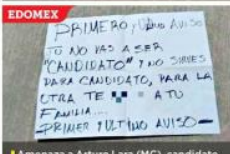 EDOMEX
PRIMERO Y ULTIMO AVISO
TU NO VAS A SER
"CANDIDATO" Y NO SIRVES
PARA CANDIDATO, PARA LA
OTRA TE A TU
FAMILIA....
PRIMER Y ULTIMO AVISO —
Amenaza a Arturo Lara (MC), candidato